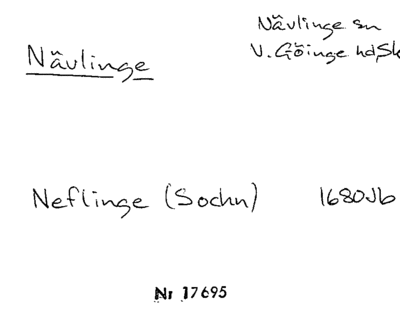 Nävlinge sn
V. Göinge hd, Sk
Nävlinge
Neflinge (Sochn) 1680 Jb
Nr 17695